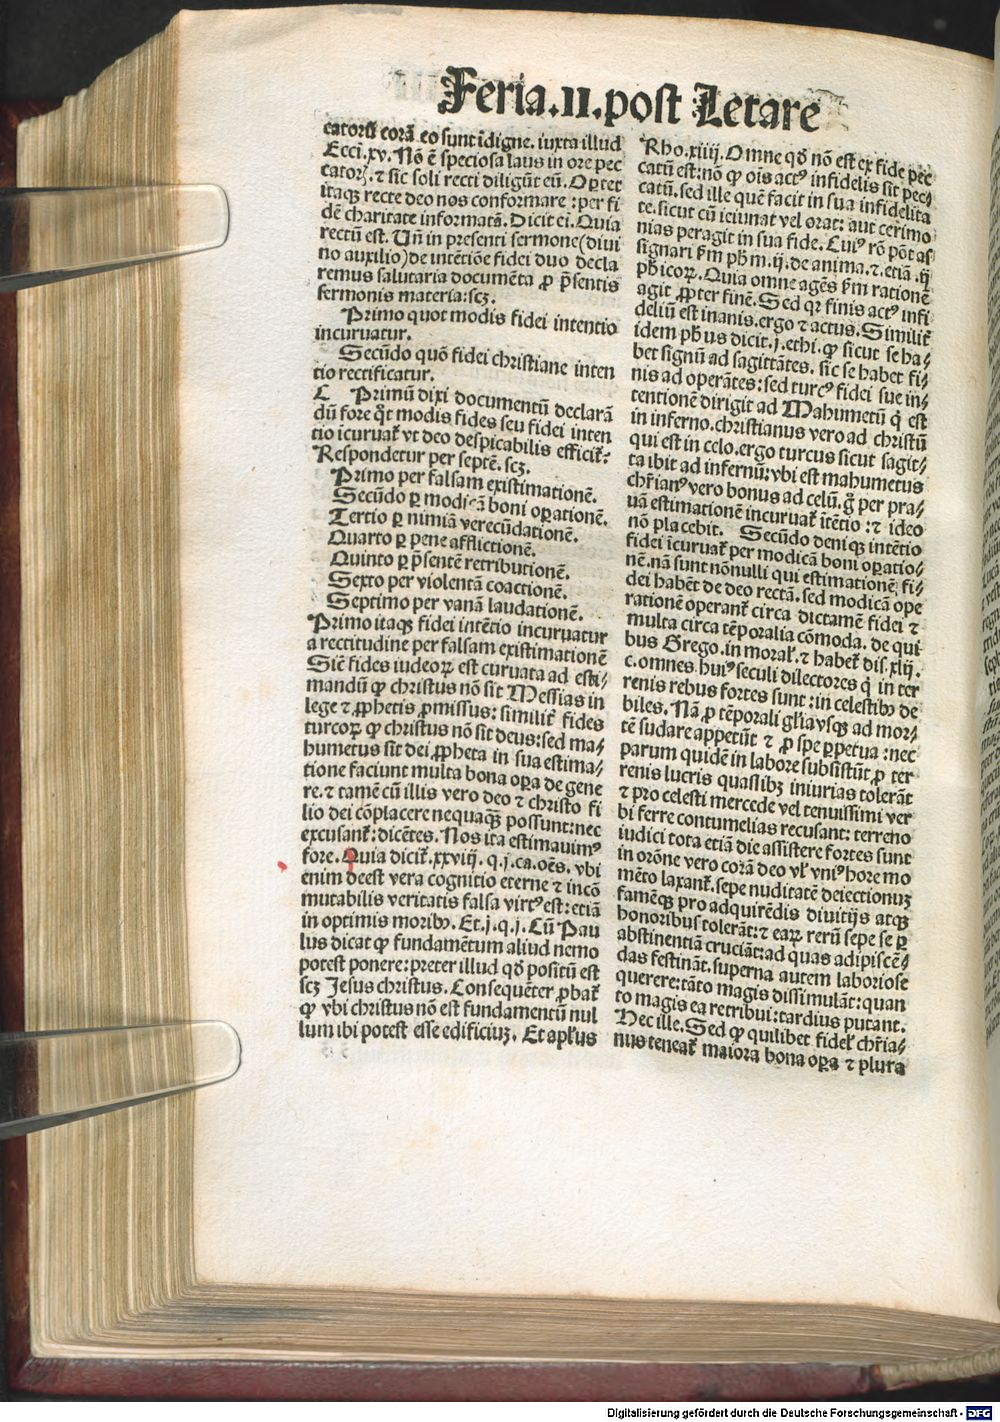 Feria.II.post Letare
catorũ corã eo sunt ĩdigne. iuxta illud
Ecci.xv. Nõ ẽ speciosa laus in ore pec
catorꝝ. ⁊ sic soli recti diligũt eũ. Oꝑtet
itaqꝫ recte deo nos conformare :per fi
dẽ charitate informatã. Dicit ei. Quia
rectũ est. Uñ in presenti sermone(diui
no auxilio)de intẽtiõe fidei duo decla
remus salutaria documẽta ꝓ p̃sentis
sermonis materia:scꝫ.
Primo quot modis fidei intentio
incuruatur.
Secũdo quõ fidei christiane inten
tio rectificatur.
C Primũ dixi documentũ declarã
dũ fore qͦt modis fides seu fidei inten
tio ĩcuruat᷑ vt deo despicabilis efficit᷑:
Respondetur per septẽ. scꝫ.
Primo per falsam existimationẽ.
Secũdo ꝑ modicã boni oꝑationẽ.
Tertio ꝑ nimiã verecũdationẽ.
Quarto ꝑ pene afflictionẽ.
Quinto ꝑ p̃sentẽ retributionẽ.
Sexto per violentã coactionẽ.
Septimo per vanã laudationẽ.
Primo itaqꝫ fidei intẽtio incuruatur
a rectitudine per falsam existimationẽ
Siẽ fides iudeorꝝ est curuata ad esti⸗
mandũ ꝙ christus nõ sit Messias in
lege ⁊ ꝓphetis ꝓmissus: similit᷑ fides
turcorꝝ ꝙ christus nõ sit deus:sed ma⸗
humetus sit dei ꝓpheta in sua estima⸗
tione faciunt multa bona oꝑa de gene
re.⁊ tamẽ cũ illis vero deo ⁊ christo fi
lio dei cõplacere nequaqꝫ̃ possunt:nec
excusant᷑:dicẽtes. Nos ita estimauimꝰ
fore. Quia dicit᷑.xxviij. q.j.ca.oẽs. vbi
enim deest vera cognitio eterne ⁊ incõ
mutabilis veritatis falsa virtꝰ est:etiã
in optimis moribꝫ. Et.j.q.j. Cũ Pau
lus dicat ꝙ fundamẽtum aliud nemo
potest ponere:preter illud qd̃ positũ est
scꝫ Jesus christus. Consequẽter ꝓbat᷑
ꝙ vbi christus nõ est fundamentũ nul
lum ibi potest esse edificiuꝫ. Et apl̃us
Rho.xiiij. Omne qd̃ nõ est ex fide pec
catũ est: nõ ꝙ oĩs actꝰ infidelis sit pec⸗
catũ. sed ille quẽ facit in sua infidelita
te. sicut cũ ieiunat vel orat: aut cerimo
nias peragit in sua fide. Cuiꝰ rõ põt as
signari s̃m ph̃m.ij.de anima.⁊.etiã.ij
ph̃icorꝝ. Quia omne agẽs s̃m rationẽ
agit ꝓpter finẽ. Sed qꝛ finis actꝰ infi
deliũ est inanis.ergo ⁊ actus. Similit᷑
idem ph̃us dicit.j.ethi.ꝙ sicut se ha⸗
bet signũ ad sagittãtes. sic se habet fi⸗
nis ad operãtes:sed turcꝰ fidei sue in⸗
tentionẽ dirigit ad Mahumetũ q̇ est
in inferno.christianus vero ad christũ
qui est in celo.ergo turcus sicut sagit⸗
ta ibit ad infernũ:vbi est mahumetus
chr̃ianꝰ vero bonus ad celũ.g̊ per pra⸗
uã estimationẽ incuruat᷑ ĩtẽtio :⁊ ideo
nõ placebit. Secũdo deniqꝫ intẽtio
fidei ĩcuruat᷑ per modicã boni oꝑatio⸗
nẽ.nã sunt nõnulli qui estimationẽ fi⸗
dei habẽt de deo rectã.sed modicã ope
rationẽ operant᷑ circa dictamẽ fidei ⁊
multa circa tẽporalia cõmoda. de qui
bus Grego.in moral᷑.⁊ habet᷑ dis.xlij.
c.omnes huiꝰ seculi dilectores q̇ in ter
renis rebus fortes sunt :in celestibꝫ de
biles. Nã ꝓ tẽporali gl̃ia vsqꝫ ad mor⸗
tẽ sudare appetũt ⁊ ꝓ spe ꝑpetua :nec
parum quidẽ in labore subsistũt.ꝓ ter
renis lucris quaslibꝫ iniurias tolerãt
⁊ pro celesti mercede vel tenuissimi ver
bi ferre contumelias recusant: terreno
iudici tota etiã die assistere fortes sunt
in orõne vero corã deo vl᷑ vniꝰ hore mo
mẽto laxant᷑. sepe nuditatẽ deiectionuꝫ
famẽqꝫ pro adquirẽdis diuitijs atqꝫ
honoribus tolerãt:⁊ earꝝ rerũ sepe se ꝑ
abstinentiã cruciãt:ad quas adipiscẽ⸗
das festinãt. superna autem laboriose
querere:tãto magis dissimulãt:quan
to magis ea retribui:tardius putant.
Hec ille. Sed ꝙ quilibet fidel᷑ chr̃ia⸗
nus teneat᷑ maiora bona oꝑa ⁊ plura
Digitalisierung gefördert durch die Deutsche Forschungsgemeinschaft - DFG